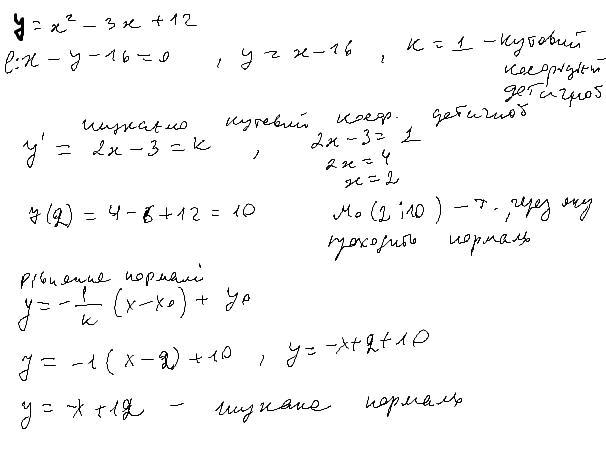 y = x² - 3x + 12
l: x - y - 16 = 0 , y = x - 16 , k = 1 - кутовий
коефіцієнт
дотичної
шукаємо кутовий коеф. дотичної
y' = 2x - 3 = k , 2x - 3 = 1
2x = 4
x = 2
y(2) = 4 - 6 + 12 = 10 M₀ (2; 10) - т., через яку
проходить нормаль
рівняння нормалі
y = - 1/k (x - x₀) + y₀
y = -1 (x - 2) + 10 , y = -x + 2 + 10
y = -x + 12 - шукана нормаль